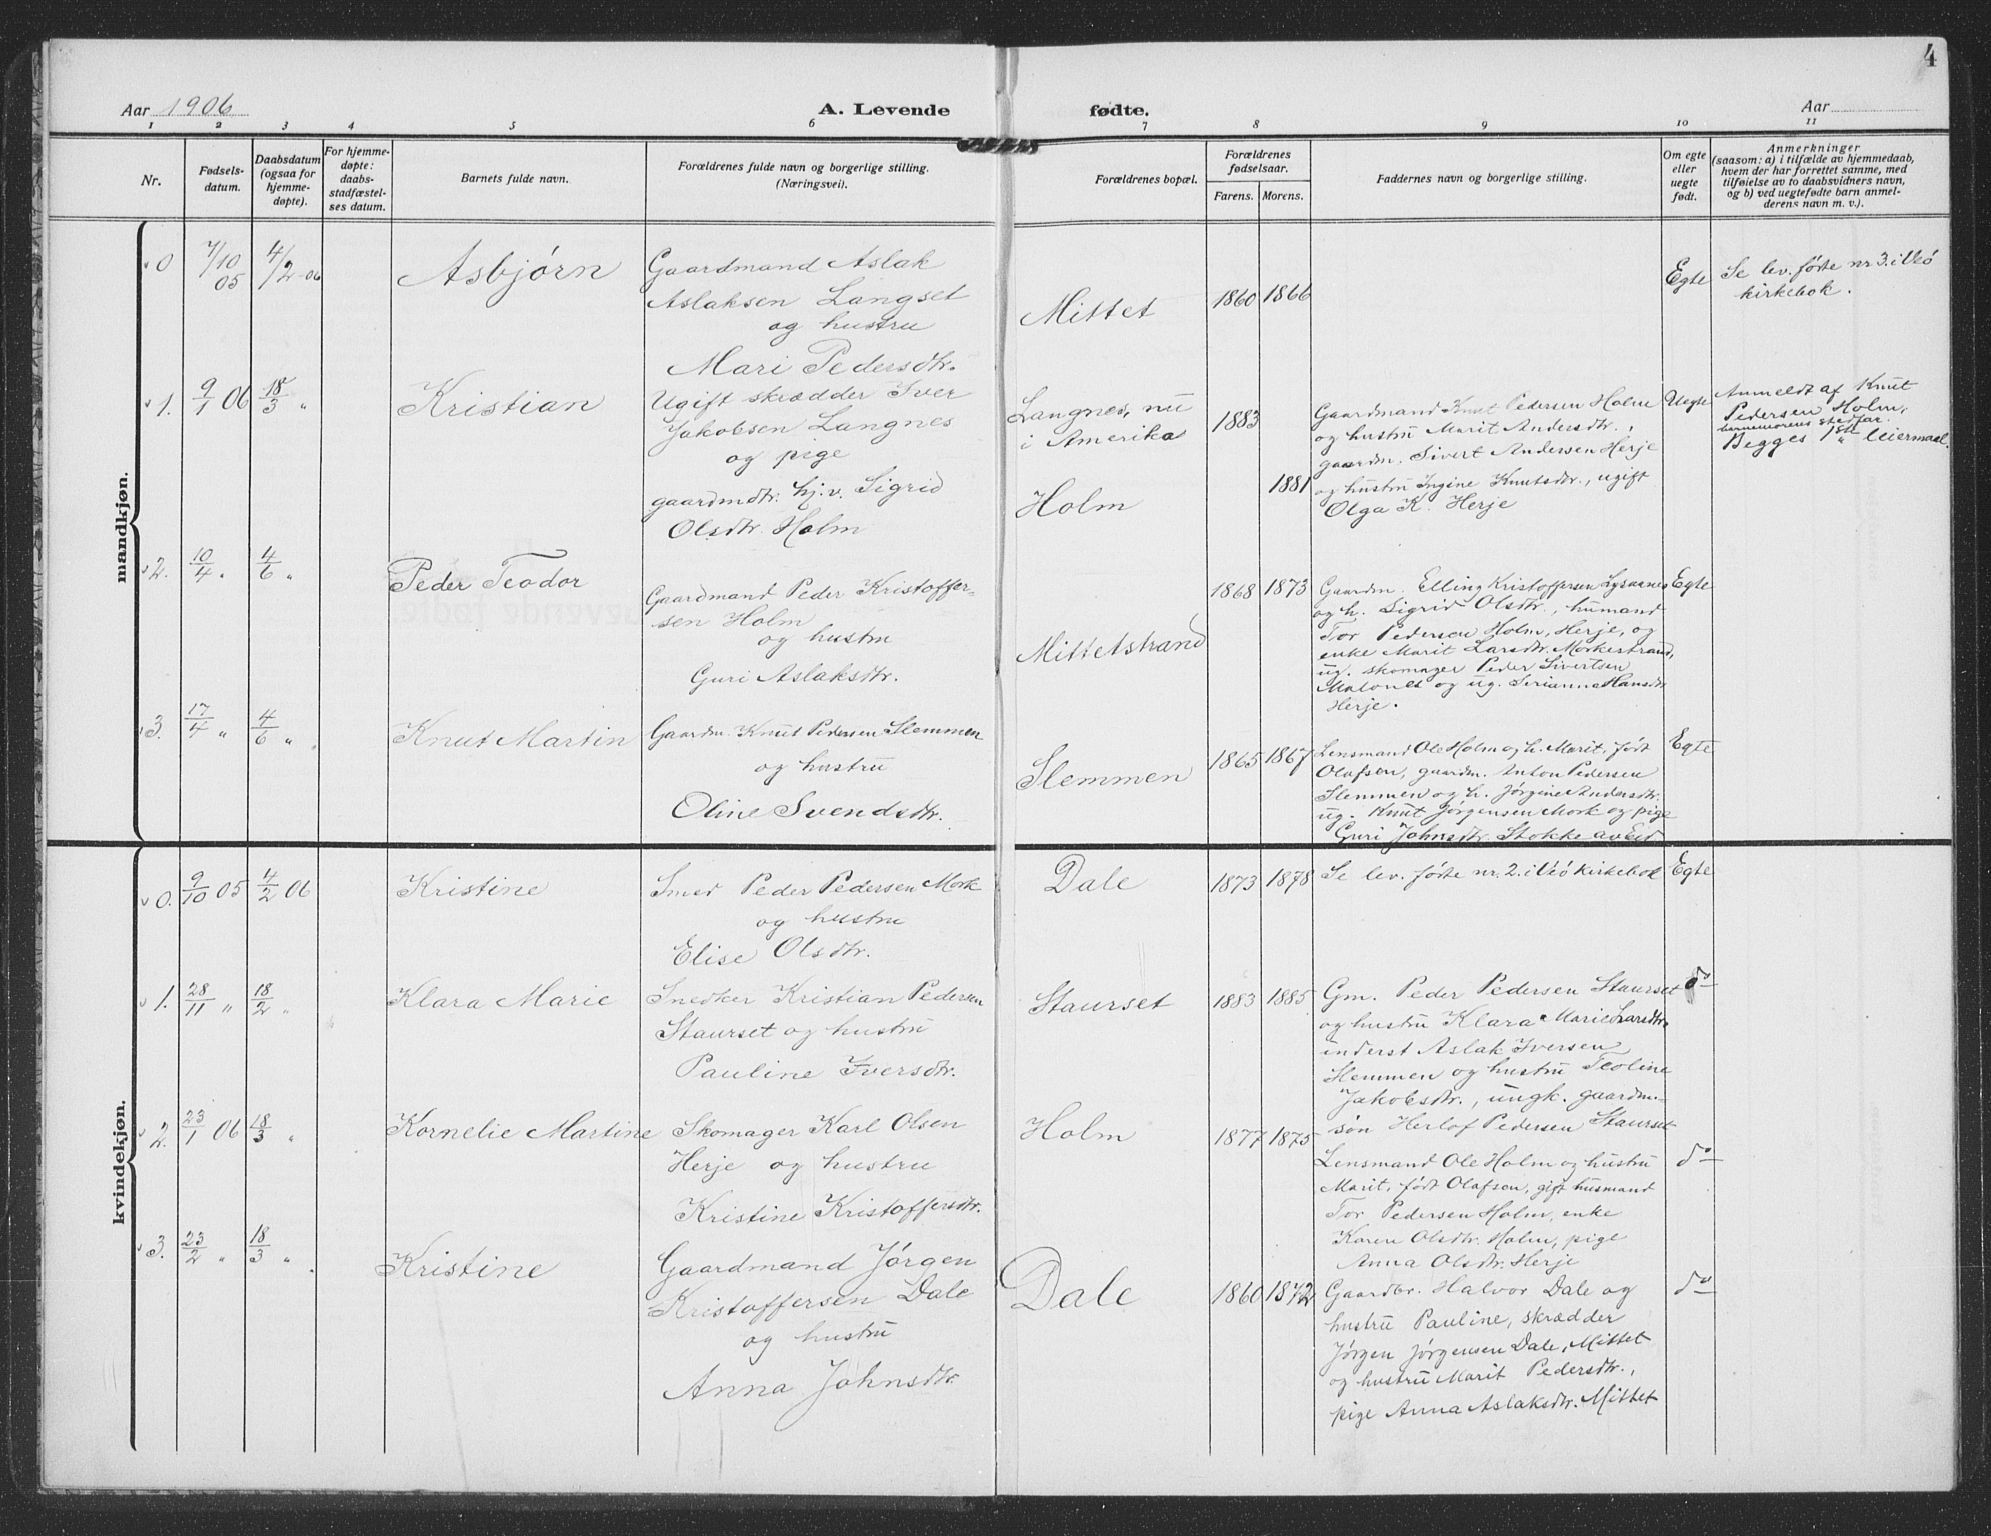 4
Aar 1906
A. Levende
fødte.
Aar
1 2 3 4 5 6 7 8 9 10 11
Nr.
Fødsels-
datum.
Daabsdatum
(ogsaa for
hjemme-
døpte).
For hjemme-
døpte:
daabs-
stadfæstel-
ses datum.
Barnets fulde navn.
Forældrenes fulde navn og borgerlige stilling.
(Næringsvei).
Forældrenes bopæl.
Forældrenes
fødselsaar.
Farens. Morens.
Faddernes navn og borgerlige stilling.
Om egte
eller
uegte
født.
Anmerkninger
(saasom: a) i tilfælde av hjemmedaab,
hvem der har forrettet samme, med
tilføielse av to daabsvidners navn,
og b) ved uegtefødte barn anmel-
derens navn m. v.).
mandkjøn.
0
7/10
05
4/2-06
Asbjørn
Gaardmand Aslak
Aslaksen Langset
og hustru
Mari Pedersdtr.
Mittet
1860 1866
Egte
Se lev. fødte nr 3. i Veö
kirkebok.
1.
9/1 06
18/3 "
Kristian
Ugift skrædder Iver
Jakobsen Langnes
og pige
gaardmdtr. hj.v. Sigrid
Olsdtr. Holm
Langnes, nu
i Amerika
Holm
1883
1881
Gaardmand Knut Pedersen Holm
og hustru Marit Andersdtr.,
gaardm. Sivert Andersen Herje
og hustru Ingine Knutsdtr., ugift
Olga K. Herje
Uegte
Anmeldt af Knut
Pedersen Holm,
barnemorens stedfar.
Begges 1ste leiermaal.
2.
10/4 "
4/6 "
Peder Teodor
Gaardmand Peder Kristoffer-
sen Holm
og hustru
Guri Aslaksdtr.
Mittetstrand
1868 1873
Gaardm. Elling Kristoffersen Lysaanes
og h. Sigrid Olsdtr., husmand
Tor Pedersen Holm, Herje, og
enke Marit Larsdtr. Morkestrand,
ug. skomager Peder Sivertsen
Malones og ug. Serianna Hansdtr
Herje.
Egte
3.
17/4 "
4/6 "
Knut Martin
Gaardm. Knut Pedersen Slemmen
og hustru
Oline Svendsdtr.
Slemmen
1865 1867
Lensmand Ole Holm og h. Marit, født
Olafsen, gaardm. Anton Pedersen
Slemmen og h. Jørgine Andersdtr.
ug. Knut Jørgensen Mork og pige
Guri Johnsdtr. Stokke av Eid
Egte
kvindekjøn.
0.
9/10 05
4/2 06
Kristine
Smed Peder Pedersen Mork
og hustru
Elise Olsdtr.
Dale
1873 1878
Se lev. fødte nr. 2. i Veö kirkebok
Egte
1.
28/11 "
18/2 "
Klara Marie
Snedker Kristian Pedersen
Staurset og hustru
Pauline Iversdtr.
Staurset
1883 1885
Gm. Peder Pedersen Staurset
og hustru Klara Marie Larsdtr.
inderst Aslak Iversen
Slemmen og hustru Teoline
Jakobsdtr., ungk. gaardm.-
søn Herlof Pedersen Staurset
do
2.
23/1 06
18/3 "
Kornelie Martine
Skomager Karl Olsen
Herje og hustru
Kristine Kristoffersdtr.
Holm
1877 1875
Lensmand Ole Holm og hustru
Marit, født Olafsen, gift husmand
Tor Pedersen Holm, enke
Karen Olsdtr. Holm, pige
Anna Olsdtr. Herje
do
3.
23/2 "
18/3 "
Kristine
Gaardmand Jørgen
Kristoffersen Dale
og hustru
Anna Johnsdtr.
Dale
1860 1872
Gaardbr. Halvor Dale og
hustru Pauline, skrædder
Jørgen Jørgensen Dale, Mittet
og hustru Marit Pedersdtr.,
pige Anna Aslaksdtr. Mittet
do